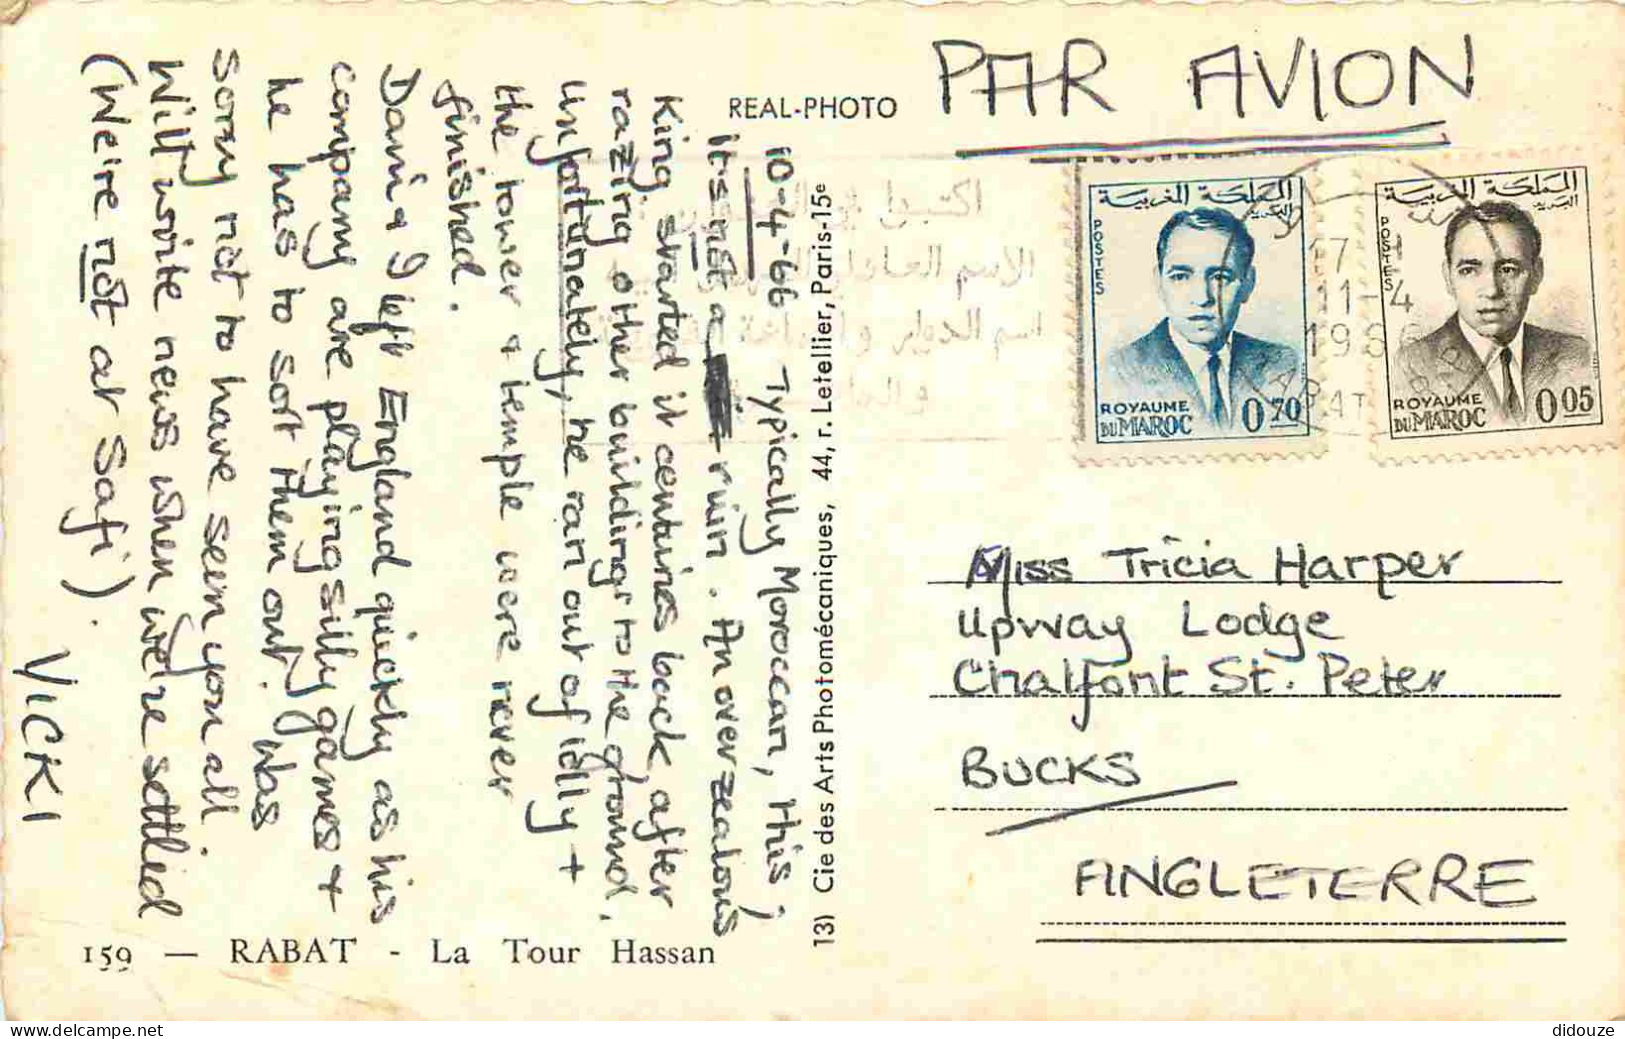 PAR AVION
REAL-PHOTO
10-4-66 Typically Moroccan, this;
it's not a ruin. An overzealous
King started it centuries back, after
razing other buildings to the ground,
unfortunately, he ran out of idlly +
the tower & temple were never
finished.
Davi & I left England quickly as his
company are playing silly games &
he has to sort them out. Was
sorry not to have seen you all.
Will write news when we're settled
(We're not at Safi).
VICKI
13) Cie des Arts Photomécaniques, 44, r. Letellier, Paris-15e
المملكة المغربية
البريد
POSTES
ROYAUME
DU MAROC
0 70
المملكة المغربية
البريد
POSTES
ROYAUME
DU MAROC
0 05
17
11-4
1966
الاسم
Miss Tricia Harper
Upway Lodge
Chalfont St. Peter
BUCKS
ANGLETERRE
159 — RABAT - La Tour Hassan
didouze